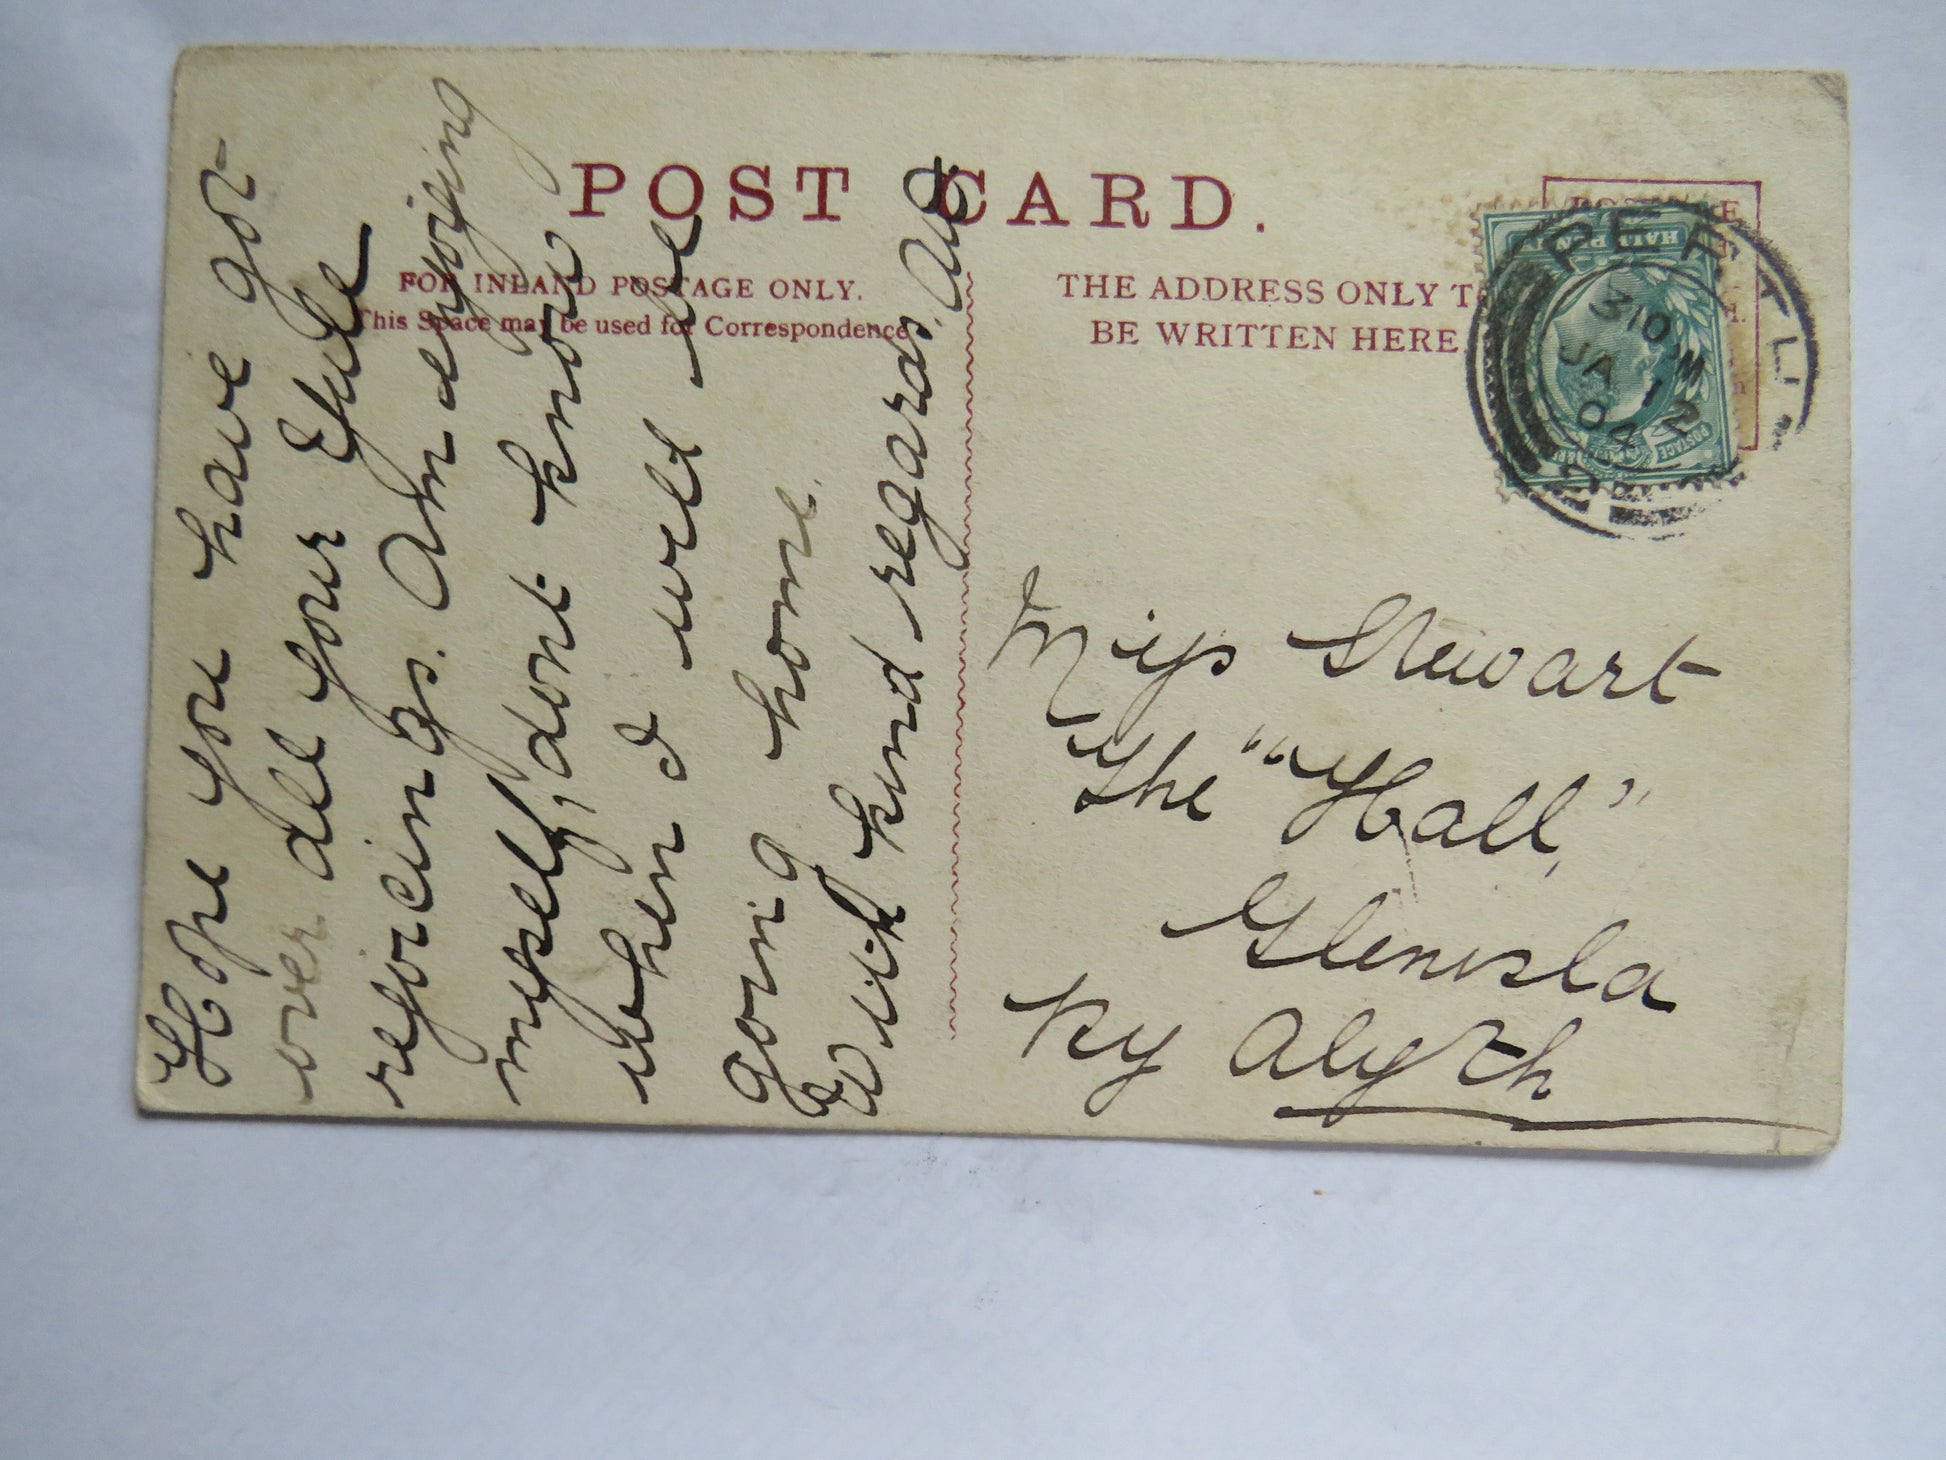 POST CARD.
FOR INLAND POSTAGE ONLY.
This Space may be used for Correspondence
THE ADDRESS ONLY TO
BE WRITTEN HERE
HALF PENNY
POSTAGE
PERTH
310 M
JA 12
04
Hope you have got
over all your Yule
rejoicings. Am enjoying
myself, dont know
when I will be
going home.
With kind regards.
Miss Stewart
The "Hall"
Glenisla
By Alyth